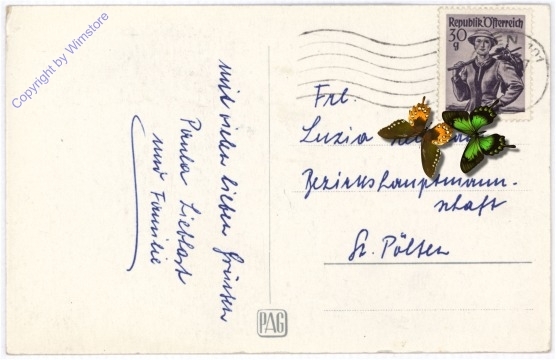 Copyright by Wimstore
mit vielen lieben Grüssen
Paula Lieblast
und Familie
PAG
Republik Österreich
30
g
Frl.
Luzia
Bezirkshauptmann-
schaft
St. Pölten